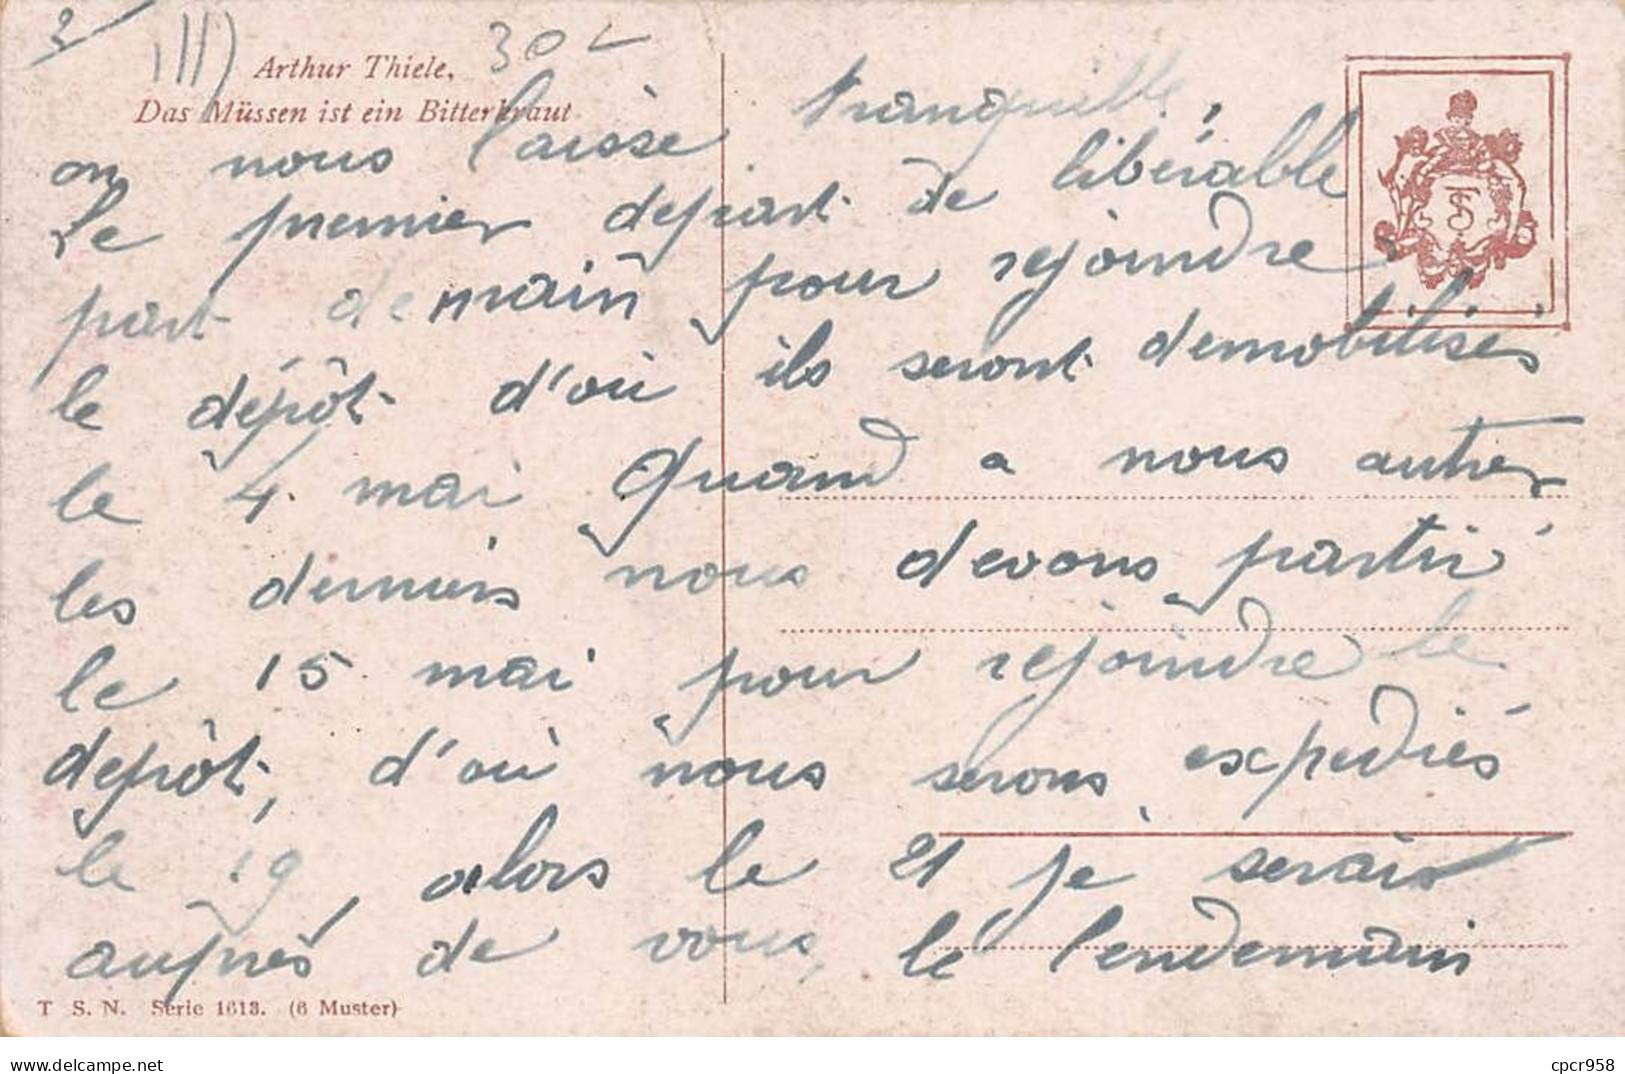 2 III) 30
Arthur Thiele,
Das Müssen ist ein Bitterkraut
on nous laisse tranquille,
Le premier départ de libérable
part demain pour rejoindre
le dépôt d'où ils seront demobilisés
le 4 mai Quand a nous autres
les derniers nous devons partir
le 15 mai pour rejoindre le
depôt, d'où nous serons expediés
le 19, alors le 21 je serais
auprès de vous, le lendemain
T S. N. Serie 1613. (6 Muster)
TS
cpcr958